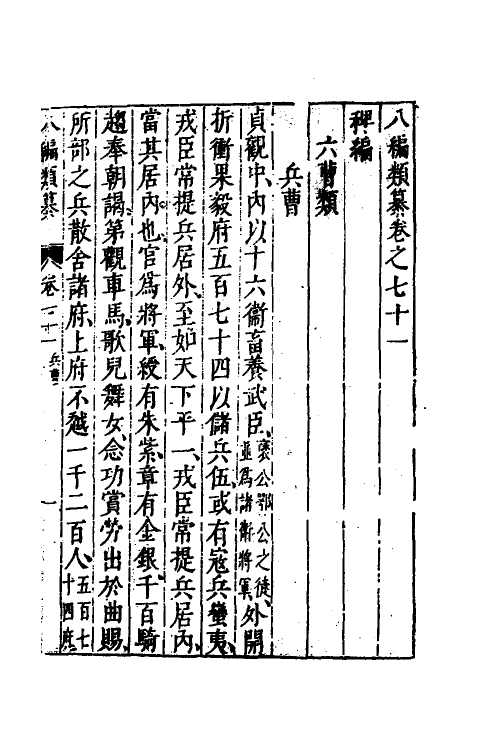 八編類纂卷之七十一
稗編
六曹類
兵曹
貞觀中、內以十六衞畜養武臣、褒公鄂公之徒、並爲諸衞將軍、外開
折衝果毅府五百七十四以儲兵伍、或有寇兵蠻夷、
戎臣常提兵居外、至如天下平一、戎臣常提兵居內、
當其居內也、官爲將軍、綬有朱紫、章有金銀、千百騎
趨奉朝謁、第觀車馬、歌兒舞女、念功賞勞、出於曲賜、
所部之兵散舍諸府、上府不越一千二百人、五百七十四府
八編類纂 卷 兵曹 一